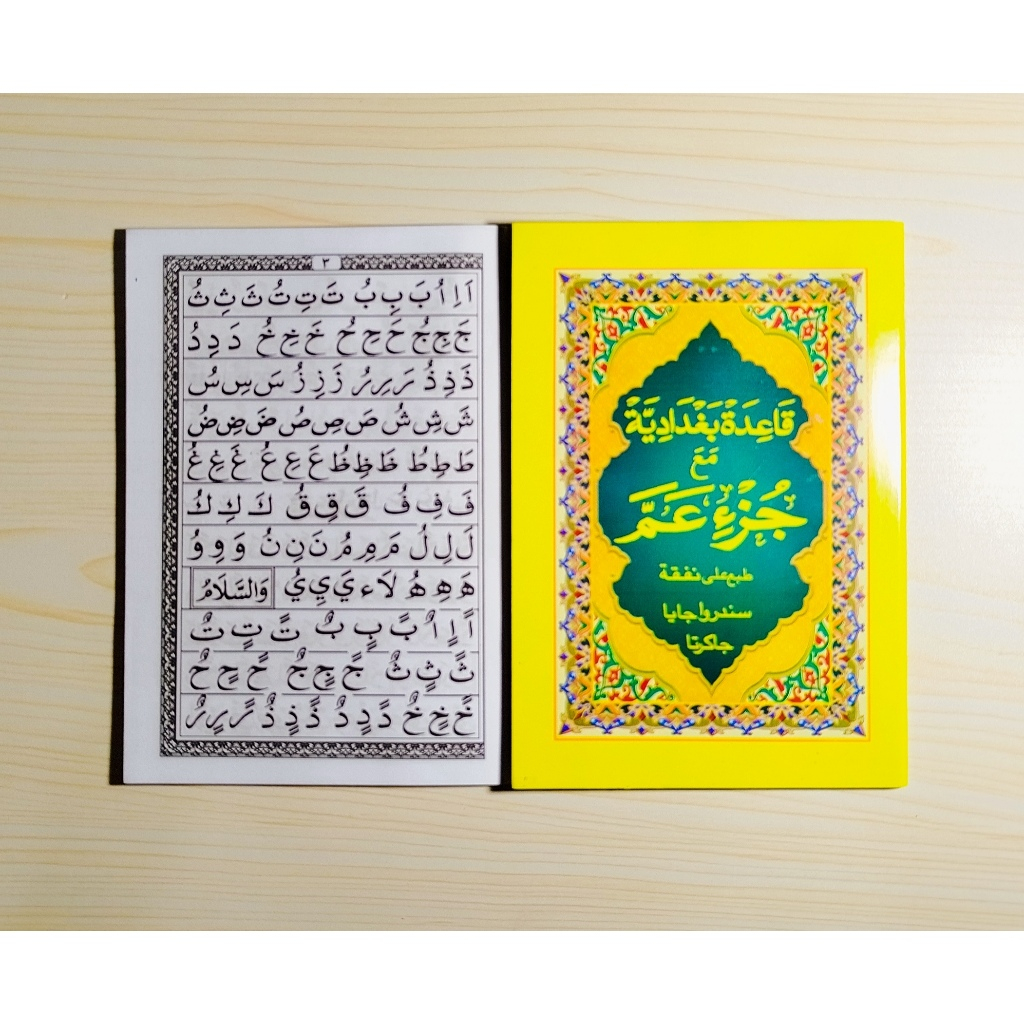 ٣
اَ اِ اُ بَ بِ بُ تَ تِ تُ ثَ ثِ ثُ
جَ جِ جُ حَ حِ حُ خَ خِ خُ دَ دِ دُ
ذَ ذِ ذُ رَ رِ رُ زَ زِ زُ سَ سِ سُ
شَ شِ شُ صَ صِ صُ ضَ ضِ ضُ
طَ طِ طُ ظَ ظِ ظُ عَ عِ عُ غَ غِ غُ
فَ فِ فُ قَ قِ قُ كَ كِ كُ
لَ لِ لُ مَ مِ مُ نَ نِ نُ وَ وِ وُ
هَ هِ هُ لَاء يَ يِ يُ وَالسَّلَامُ
اً اٍ اٌ بً بٍ بٌ تً تٍ تٌ
ثً ثٍ ثٌ جً جٍ جٌ حً حٍ حٌ
خً خٍ خٌ دً دٍ دٌ ذً ذٍ ذٌ رً رٍ رٌ
قَاعِدَةْ بَغْدَادِيَّةْ
مَعَ
جُزْءِ عَمَّ
طبع على نفقة
سندرو اجايا
جاكرتا